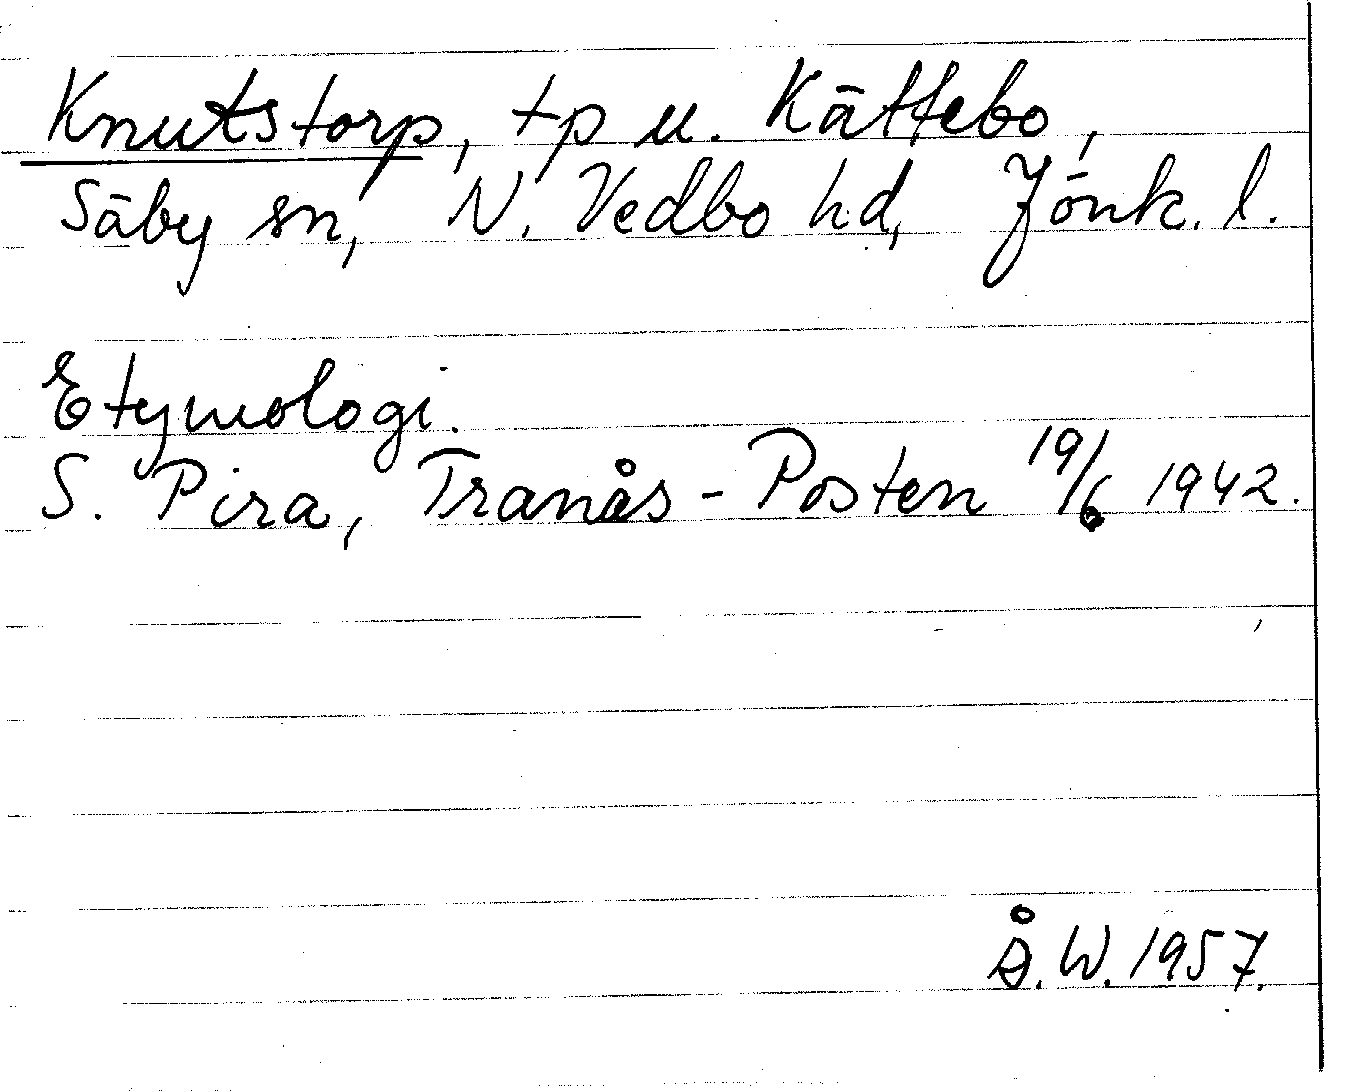 Knutstorp, tp u. Kättebo,
Säby sn, N. Vedbo hd, Jönk. l.
Etymologi.
S. Pira, Tranås-Posten 19/6 1942.
Å.W. 1957.